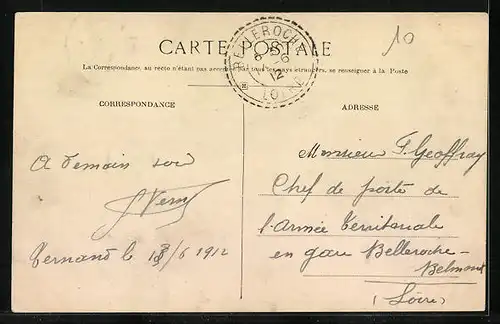 CARTE POSTALE
La Correspondance, au recto n'étant pas acceptée par tous les pays étrangers, se renseigner à la Poste
BELLEROCHE
8 -6
12
LOIRE
10
CORRESPONDANCE
ADRESSE
A demain soir
Ternand le /6 1912
Monsieur F. Geoffray
Chef de poste de
l'Armée Territoriale
en gare Belleroche-
Belmont
(Loire)